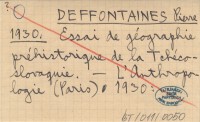 DEFFONTAINES Pierre
1930. Essai de géographie
préhistorique de la Tchéco-
slovaquie. — L'Anthropo-
logie (Paris). 1930.
BT/011/0050